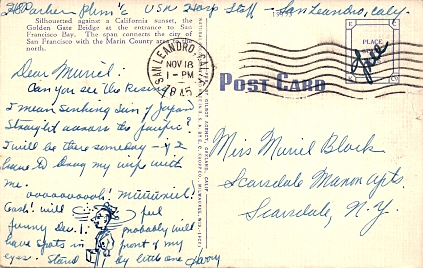 H Parker PhM 1/c USN Hosp Staff - San Leandro, Caly.
Silhouetted against a California sunset, the
Golden Gate Bridge at the entrance to San
Francisco Bay. The span connects the city of
San Francisco with the Marin County area
north.
SAN LEANDRO, CALIF.
NOV 18
1 - PM
1945
PLACE
Free
POST CARD
Dear Muriel:
Can you see the Rising
I mean sinking Sun of Japan
straight across the Pacific?
I will be there someday - & I
have to drag my wife with
me.
ooooooooooh! Müüüriel!
Gosh! will feel
funny Dec. 1. probably will
have spots in front of my
eyes. Stand by little one
Miss Muriel Block
Scarsdale Manor Apts.
Scarsdale, N.Y.